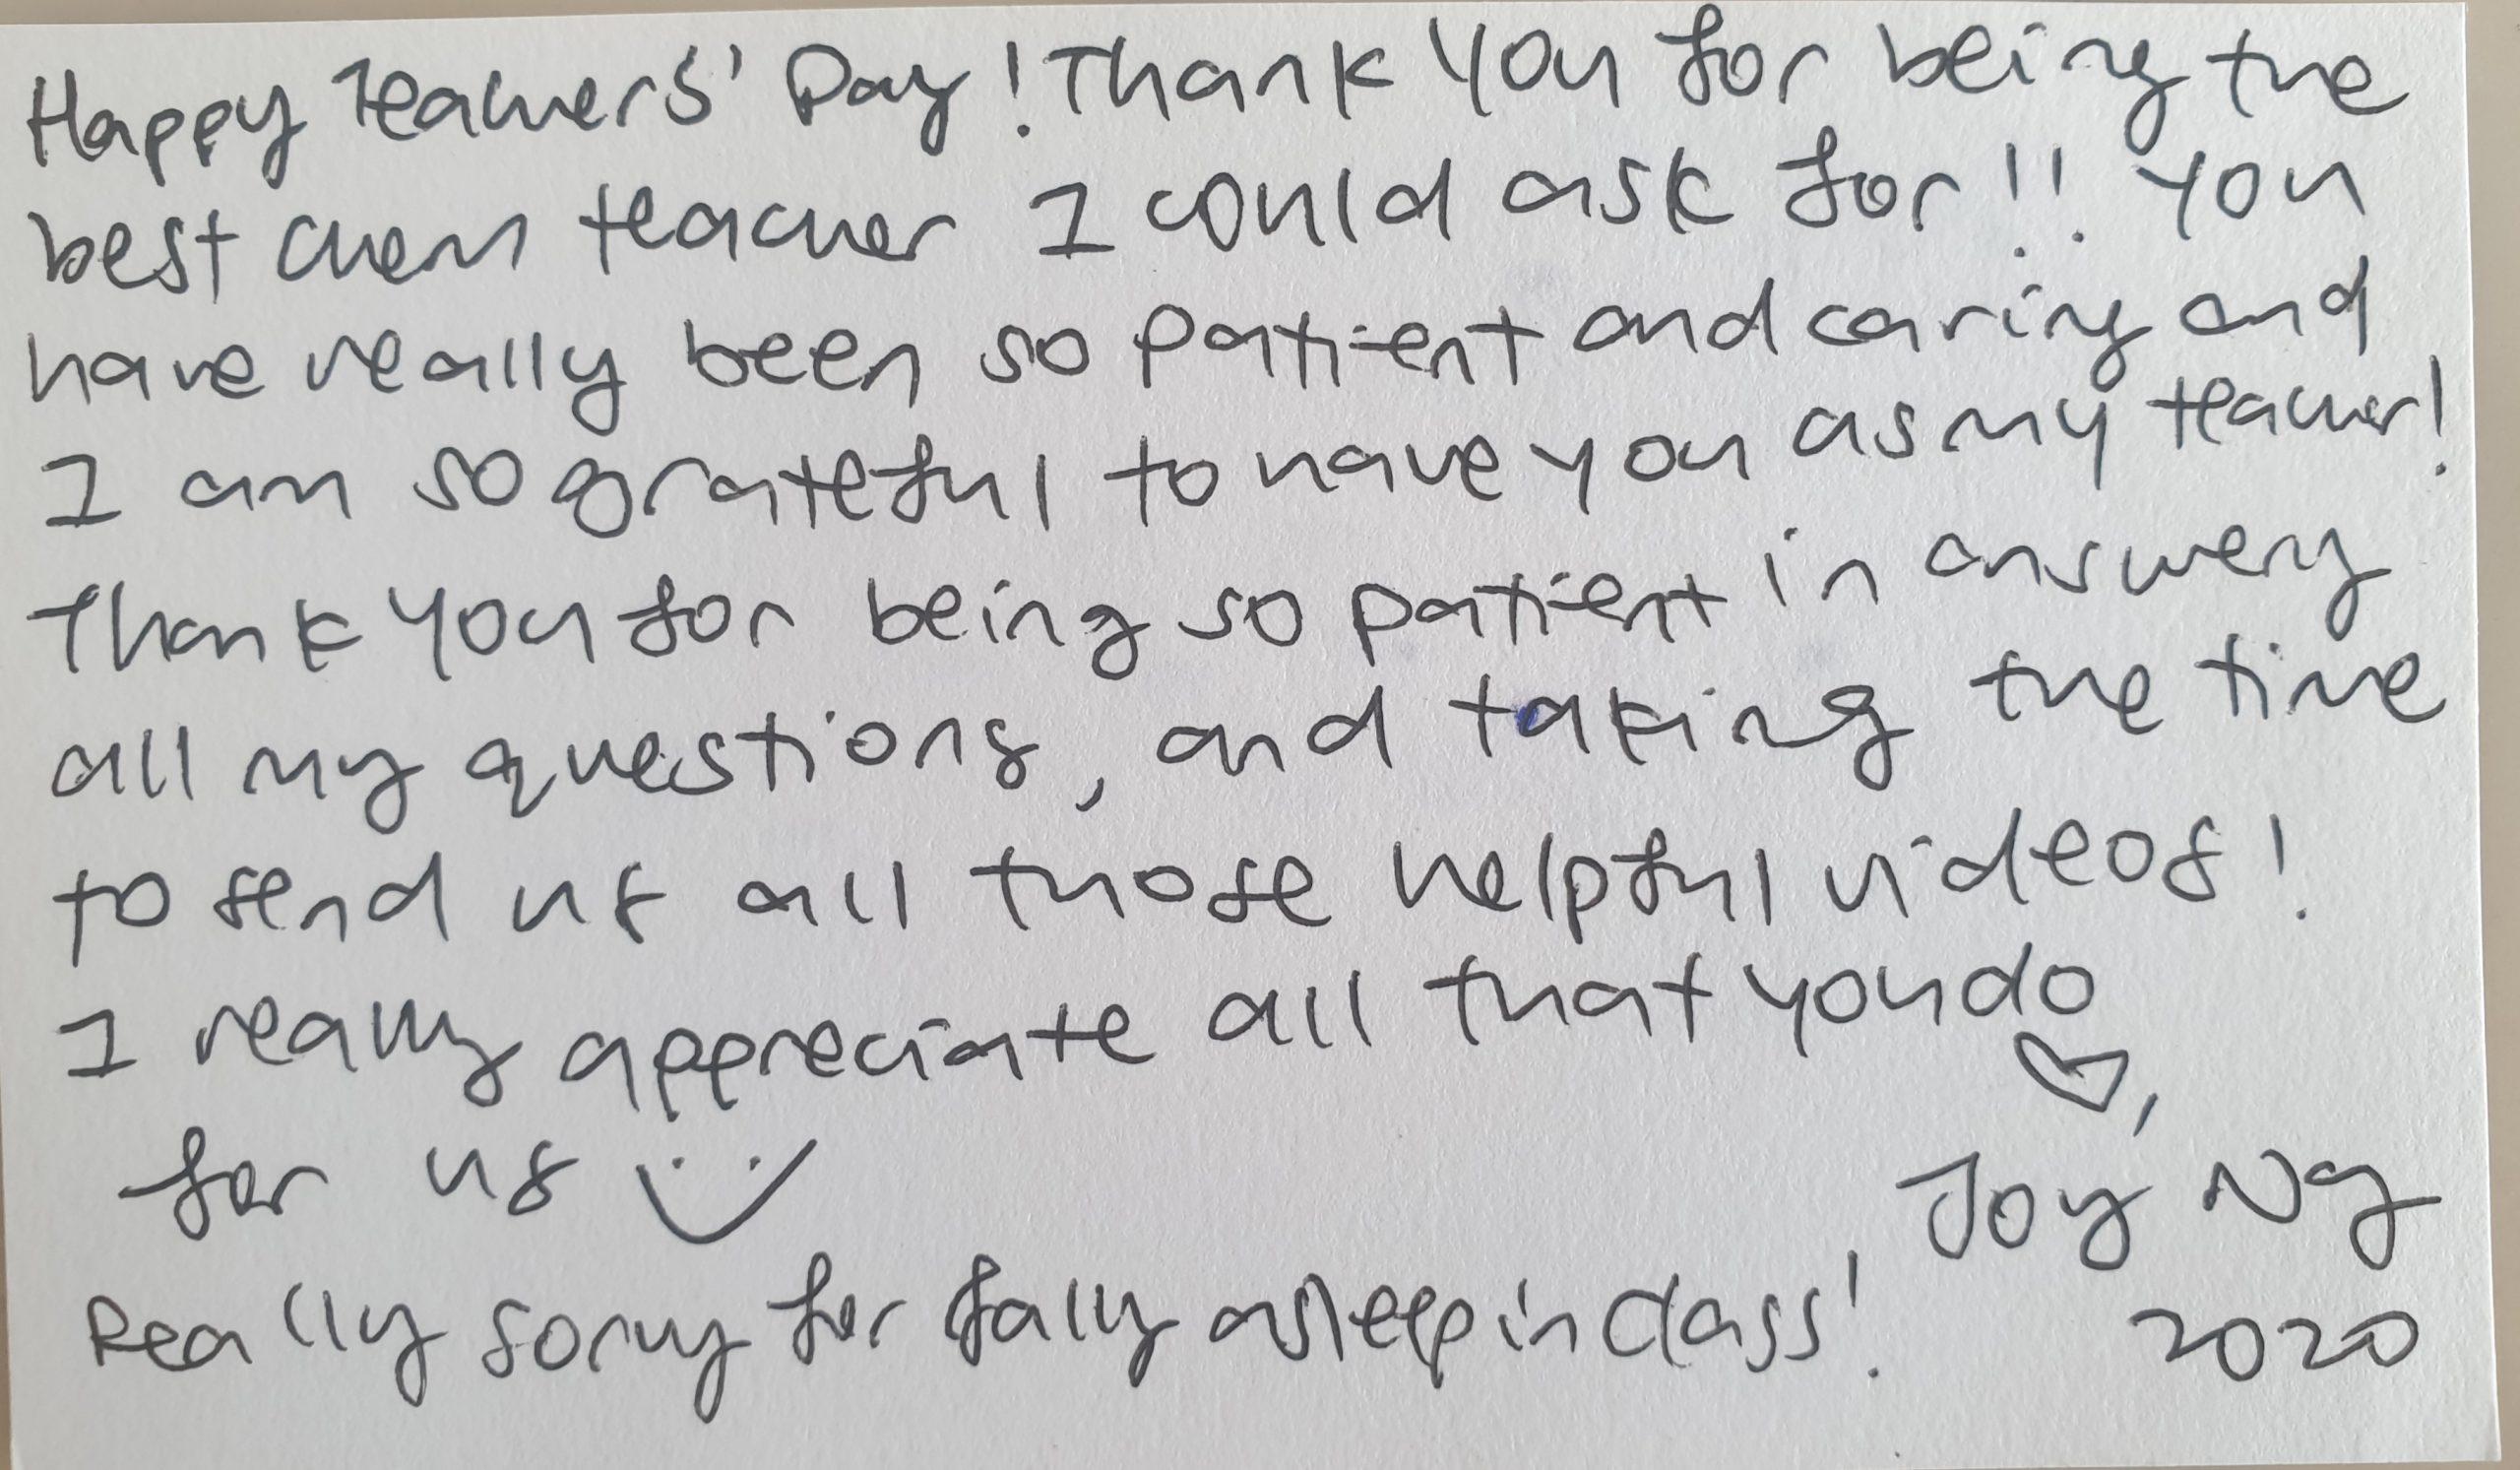 Happy Teachers' Day! Thank you for being the
best chem teacher I could ask for!! You
have really been so patient and caring and
I am so grateful to have you as my teacher!
Thank you for being so patient in answering
all my questions, and taking the time
to send us all those helpful videos!
I really appreciate all that you do
for us :) ♡,
Joy Ng
Really sorry for falling asleep in class!
2020